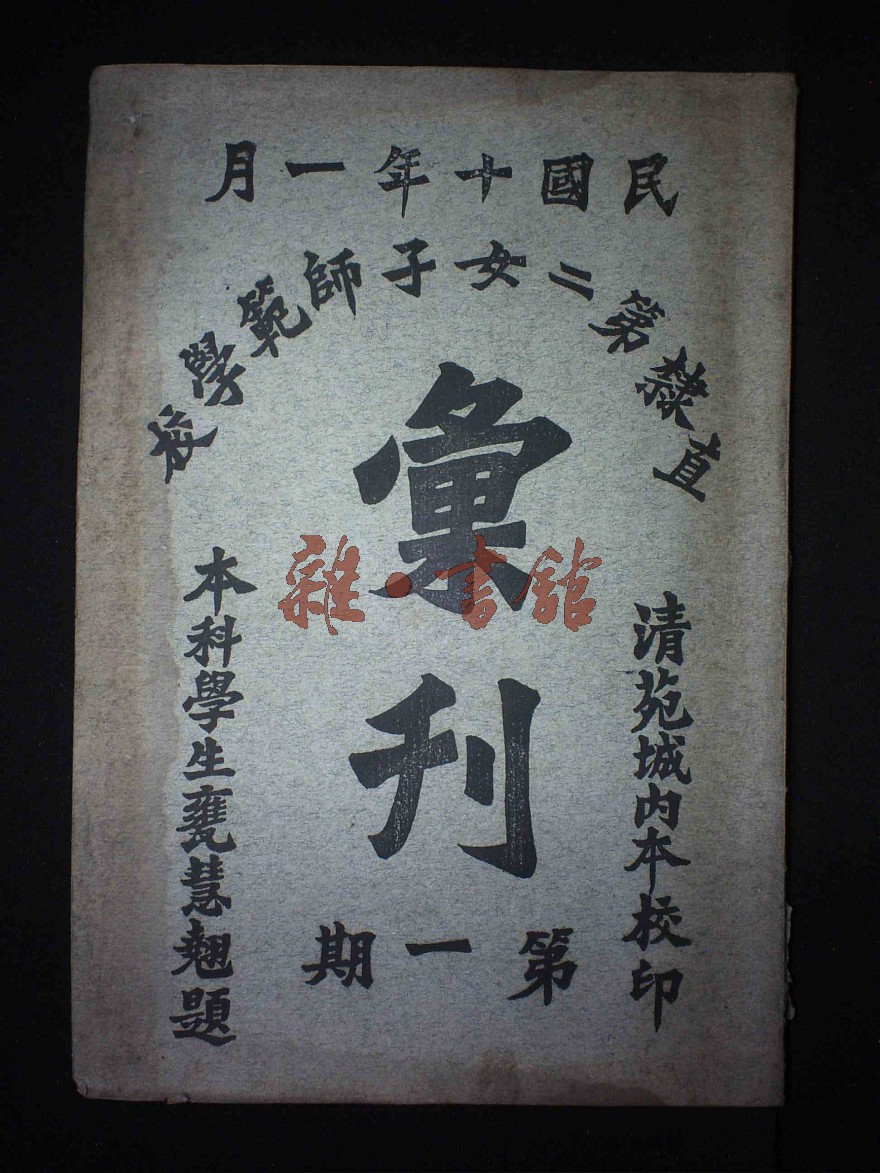 民國十年一月
直隸第二女子師範學校
彙刊
第一期
清苑城内本校印
本科學生甕慧翹題
雜·書館